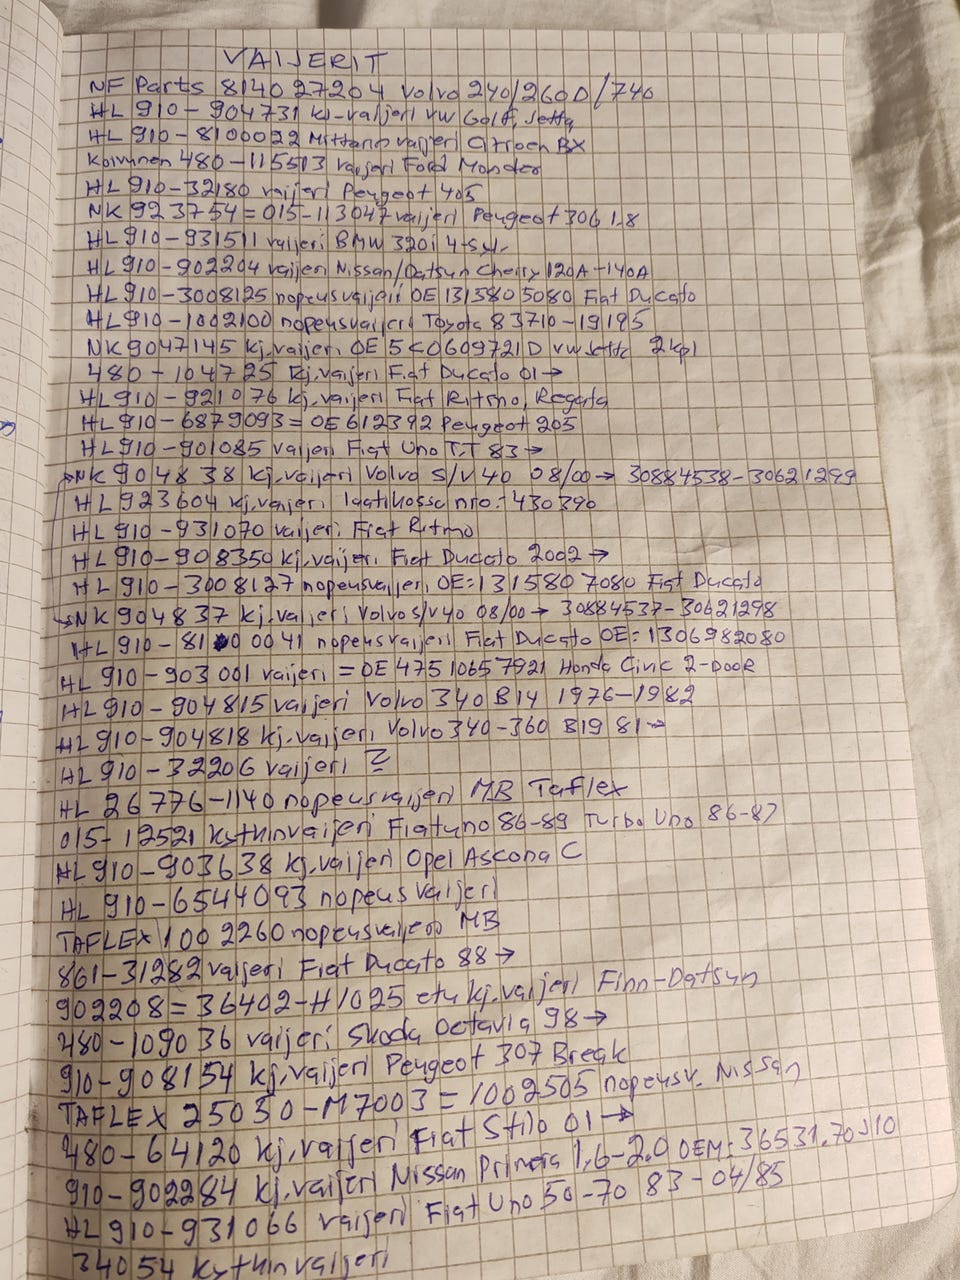 VAIJERIT
NF Parts 8140 27204 Volvo 240/260D/740
HL 910-904731 kj-vaijeri VW Golf, Jetta
HL 910-8100022 Mittarin vaijeri Citroen BX
Koivunen 480-115513 vaijeri Ford Mondeo
HL 910-32180 vaijeri Peugeot 405
NK 923754=015-113047 vaijeri Peugeot 306 1.8
HL 910-931511 vaijeri BMW 320i 4-syl.
HL 910-902204 vaijeri Nissan/Datsun Cherry 120A-140A
HL 910-3008125 nopeusvaijeri OE 1315805080 Fiat Ducato
HL 910-1002100 nopeusvaijeri Toyota 83710-19195
NK 9047145 kj.vaijeri OE 5C0609721D VW Jetta 2kpl
480-104725 kj.vaijeri Fiat Ducato 01→
HL 910-921076 kj.vaijeri Fiat Ritmo, Regata
HL 910-6879093=OE 612392 Peugeot 205
HL 910-901085 vaijeri Fiat Uno T.T 83→
NK 904838 kj.vaijeri Volvo S/V40 08/00→ 30884538-30621299
HL 923604 kj.vaijeri laatikossa nro:430390
HL 910-931070 vaijeri Fiat Ritmo
HL 910-908350 kj.vaijeri Fiat Ducato 2002→
HL 910-3008127 nopeusvaijeri OE:1315807080 Fiat Ducato
NK 904837 kj.vaijeri Volvo S/V40 08/00→ 30884537-30621298
HL 910-8100041 nopeusvaijeri Fiat Ducato OE=1306982080
HL 910-903001 vaijeri = OE 47510657921 Honda Civic 2-DOOR
HL 910-904815 vaijeri Volvo 340 B14 1976-1982
HL 910-904818 kj.vaijeri Volvo 340-360 B19 81→
HL 910-32206 vaijeri ?
HL 26776-1140 nopeusvaijeri MB Taflex
015-12521 kytkinvaijeri Fiat Uno 86-89 Turbo Uno 86-87
HL 910-903638 kj.vaijeri Opel Ascona C
HL 910-6544093 nopeusvaijeri
TAFLEX 1002260 nopeusvaijeri MB
861-31282 vaijeri Fiat Ducato 88→
902208=36402-H1025 etu kj.vaijeri Finn-Datsun
480-109036 vaijeri Skoda Octavia 98→
910-908154 kj.vaijeri Peugeot 307 Break
TAFLEX 25050-M7003=1002505 nopeusv. Nissan
480-64120 kj.vaijeri Fiat Stilo 01→
910-902284 kj.vaijeri Nissan Primera 1,6-2.0 OEM:36531.70J10
HL 910-931066 vaijeri Fiat Uno 50-70 83-04/85
34054 kytkinvaijeri